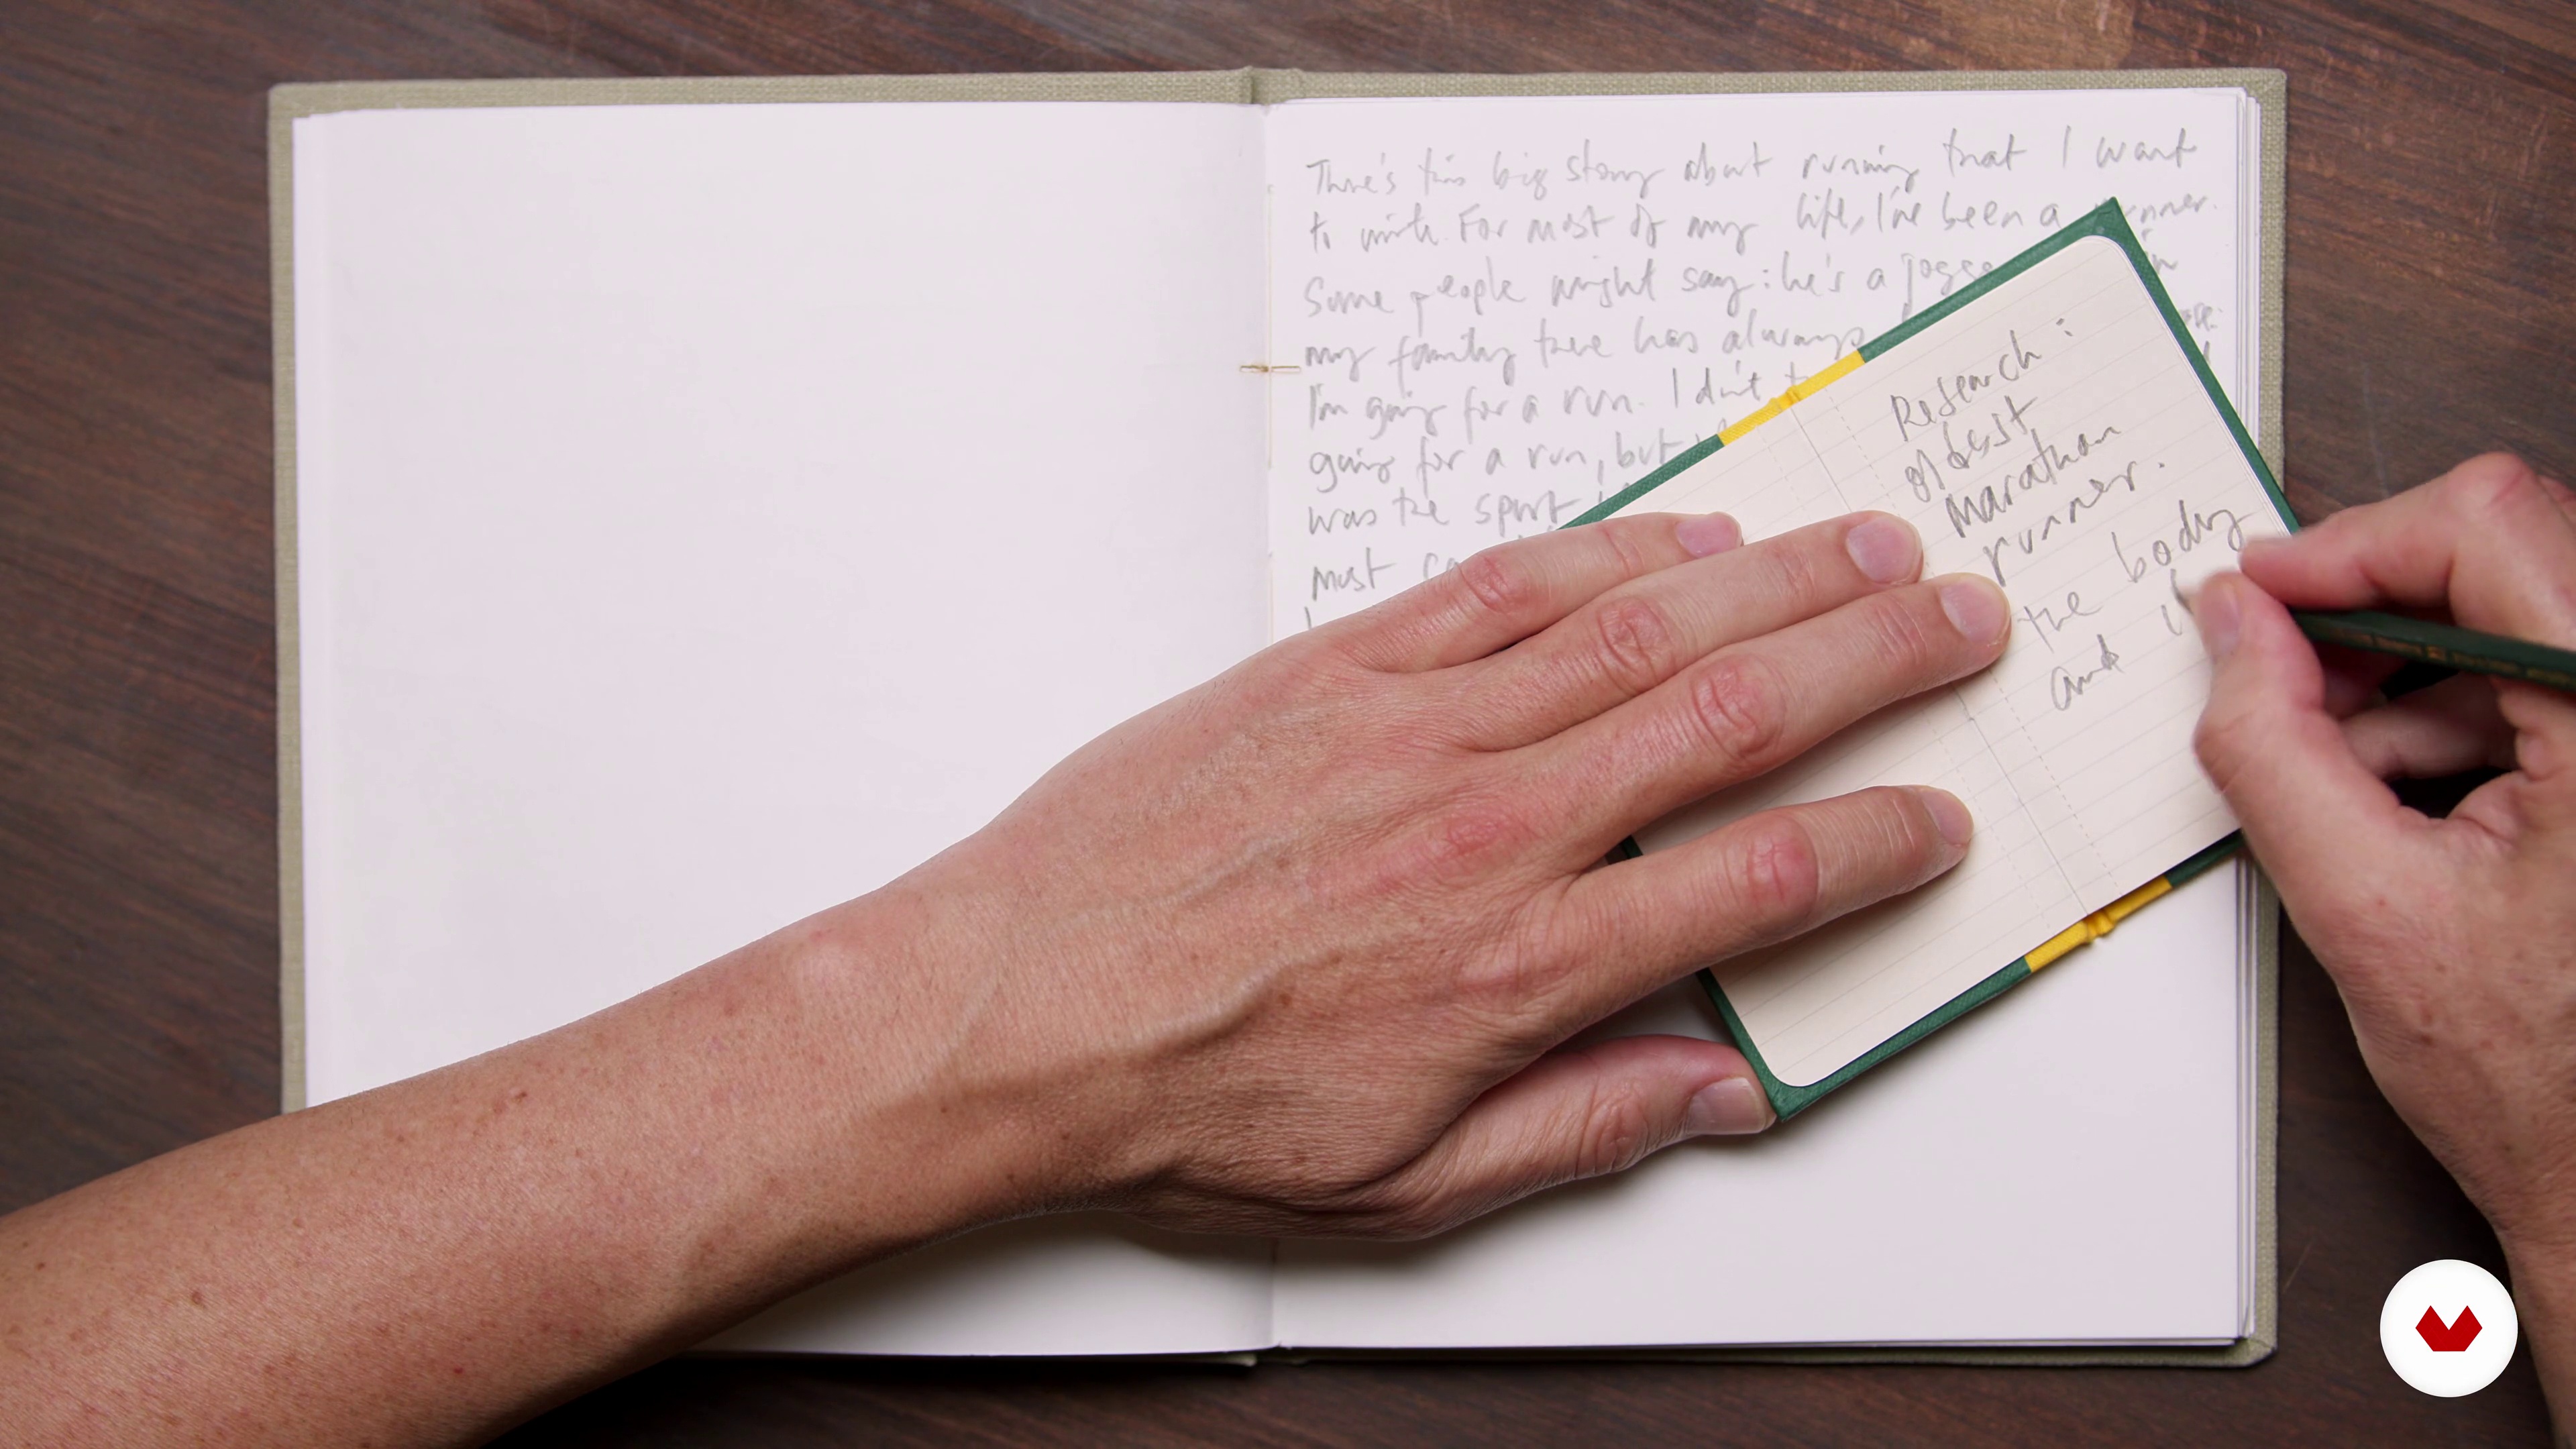 There's this big story about running that I want
to write. For most of my life, I've been a runner.
Some people might say: he's a
my family there has always
I'm going for a run. I don't
going for a run, but
was the sport
most
Research:
oldest
Marathon
runner.
the body
and